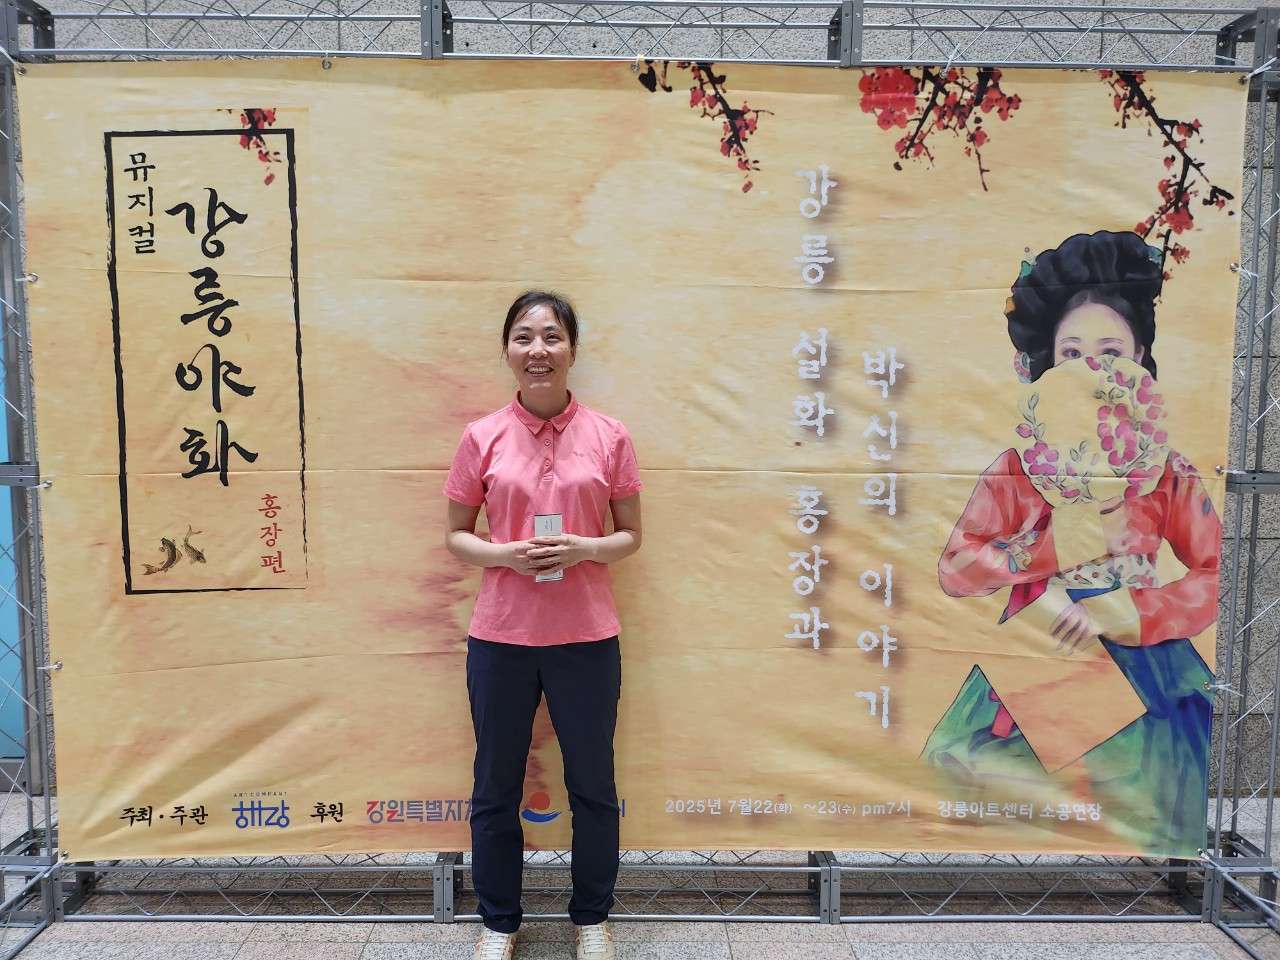 뮤지컬
강릉야화
홍장편
강릉 설화 홍장과
박신의 이야기
주최·주관
ART COMPANY
해랑
후원
강원특별자치
시
2025년 7월22(화) ~23(수) pm7시 강릉아트센터 소공연장